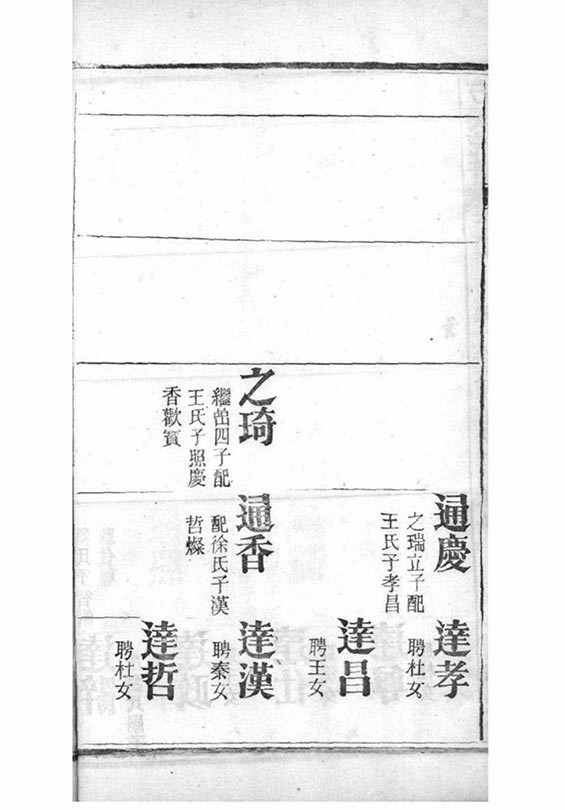 之琦
繼嵒四子配
王氏子照慶
香歡賓
通慶
之瑞立子配
王氏子孝昌
通香
配徐氏子漢
哲燦
達孝
聘杜女
達昌
聘王女
達漢
聘秦女
達哲
聘杜女